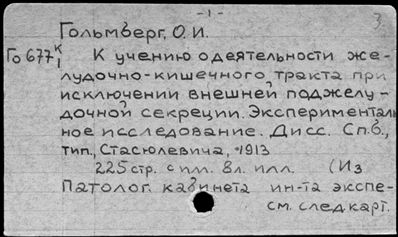 -1-
3
Гольмберг, О. И.
Го 677 К/1 К учению о деятельности же-
лудочно-кишечного тракта при
исключении внешней поджелу-
дочной секреции. Эксперименталь
ное исследование. Дисс. Спб.,
тип. Стасюлевича, 1913
225 стр. с илл. 8 л. илл. (Из
Патолог. кабинета ин-та экспе-
см. след карт.